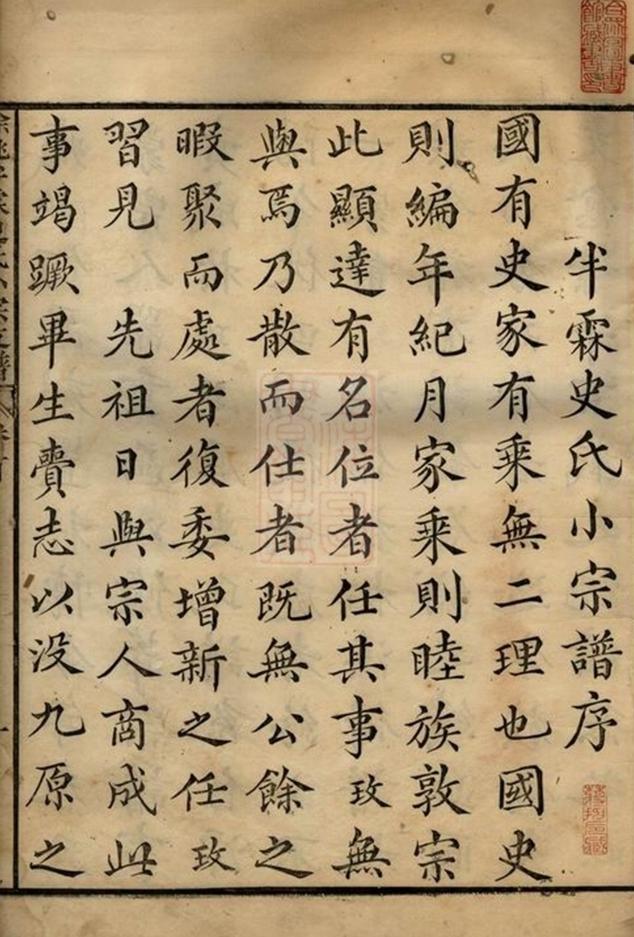 半霖史氏小宗譜序
國有史家有乘無二理也國史
則編年紀月家乘則睦族敦宗
此顯達有名位者任其事玫無
與焉乃散而仕者既無公餘之
暇聚而處者復委增新之任玫
習見　先祖日與宗人商成此
事竭蹶畢生賫志以没九原之